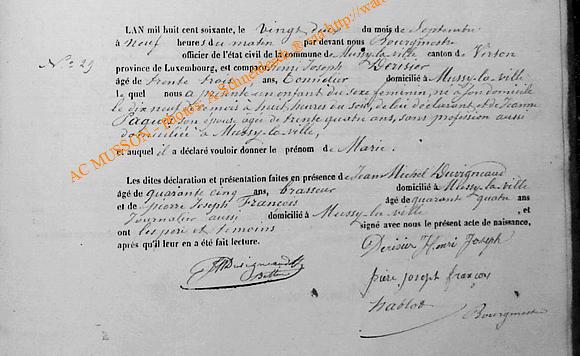 LAN mil huit cent soixante, le vingt deux du mois de Septembre
à neuf heures du matin par devant nous Bourgmestre
officier de l'état civil de la commune de Mussy-la-ville canton de Virton
N° 29
province de Luxembourg, est comparu Henri Joseph Derisier
âgé de trente trois ans, Tonnelier domicilié à Mussy-la-ville
le quel nous a présenté un enfant du sexe féminin, né à son domicile
le dix neuf de ce mois à huit heures du soir, de lui déclarant, et de Jeanne
Paquet son épouse agée de trente quatre ans, sans profession aussi
domiciliée à Mussy-la-ville,
et auquel il a déclaré vouloir donner le prénom de Marie.
Les dites déclaration et présentation faites en présence de Jean Michel Buvigneaud
âgé de quarante cinq ans, brasseur domicilié à Mussy-la-ville
et de Pierre Joseph François âgé de quarante quatre ans
Journalier aussi domicilié à Mussy-la-ville , et
ont les père et témoins signé avec nous le présent acte de naissance,
après qu'il leur en a été fait lecture.
Derisier Henri Joseph
piere joseph françois
Bourgmestre
AC MUSSON - Photos: A. Schneidesch